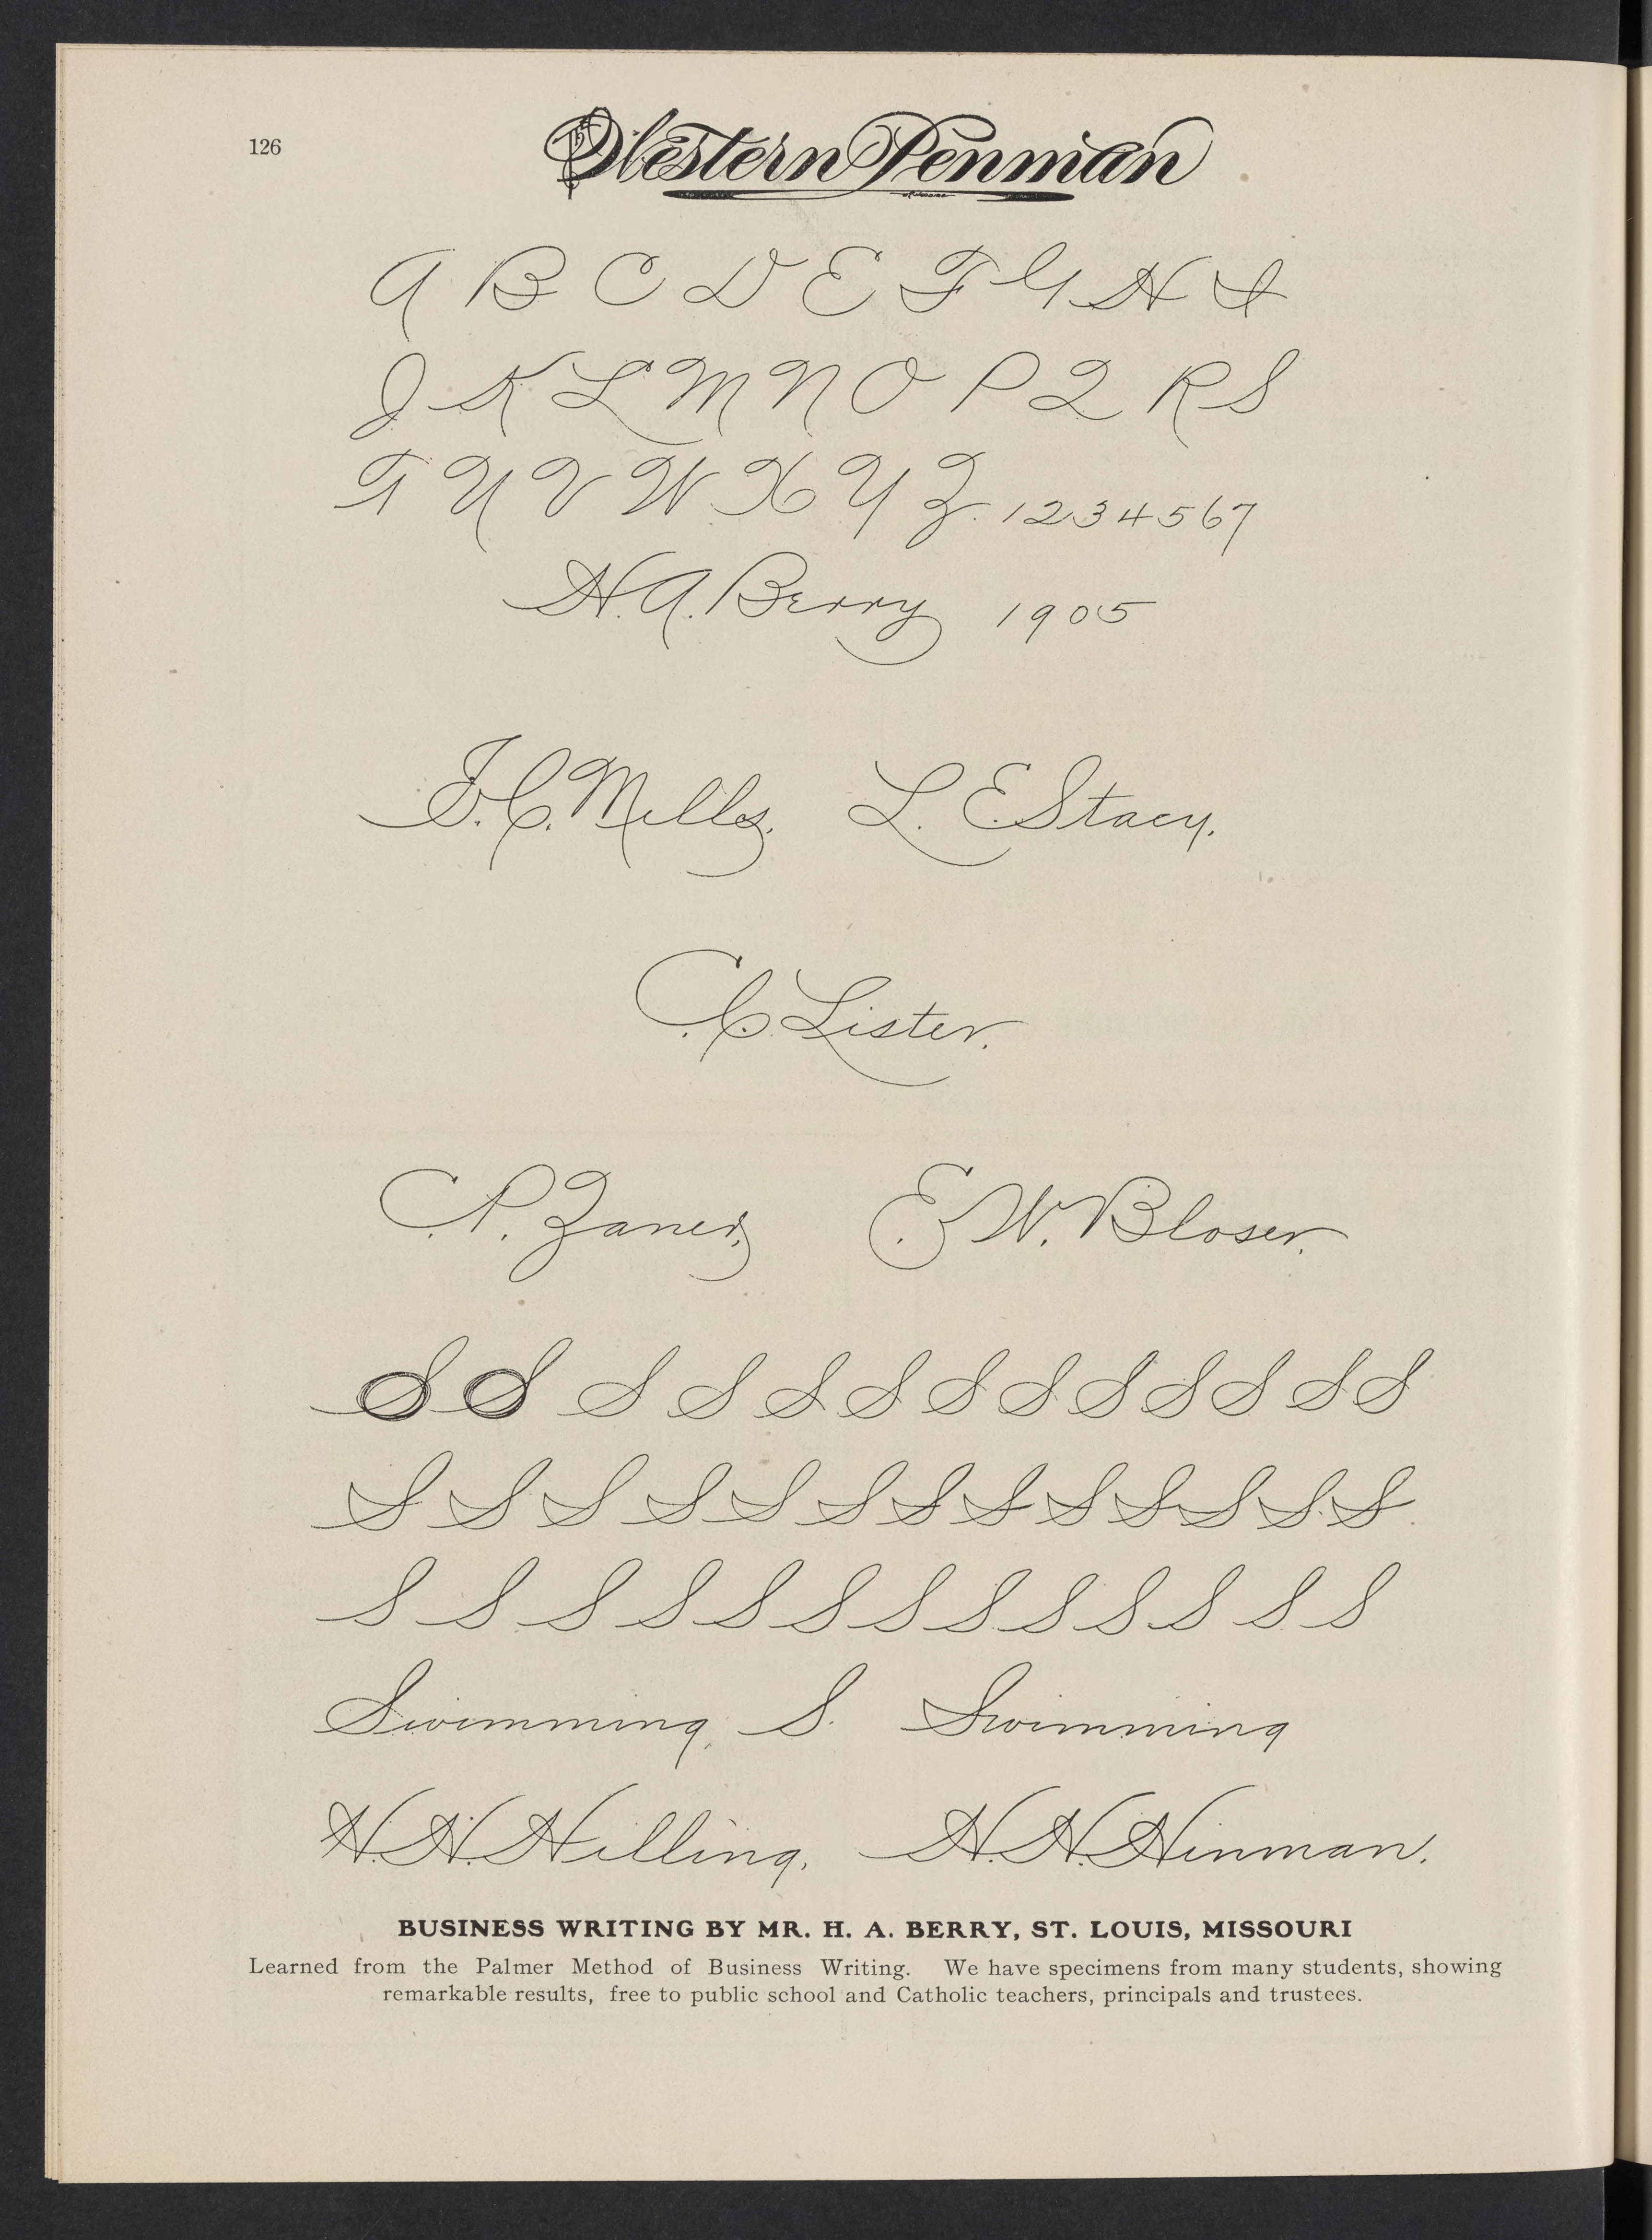 126
The Western Penman
A B C D E F G H I
J K L M N O P Q R S
T U V W X Y Z. 1 2 3 4 5 6 7
H. A. Berry 1905
F. C. Mills. L. E. Stacy.
C. C. Lister.
C. P. Zaner. E. W. Bloser.
S S S S S S S S S S S S S
S S S S S S S S S S S S S
S S S S S S S S S S S S S
Swimming, S. Swimming
H. H. Hilling. H. H. Hinman.
BUSINESS WRITING BY MR. H. A. BERRY, ST. LOUIS, MISSOURI
Learned from the Palmer Method of Business Writing. We have specimens from many students, showing
remarkable results, free to public school and Catholic teachers, principals and trustees.